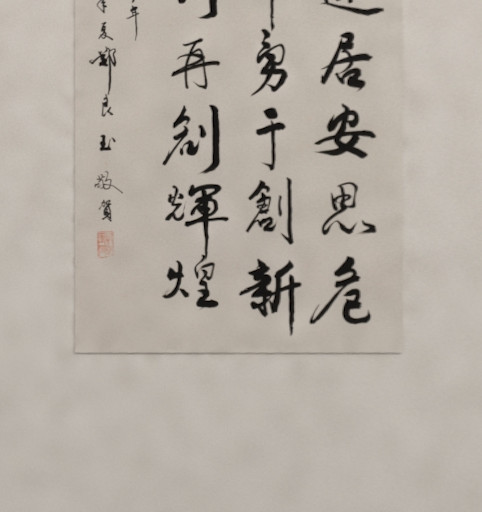 居安思危
勇于創新
再創輝煌
年
夏鄭良玉敬賀